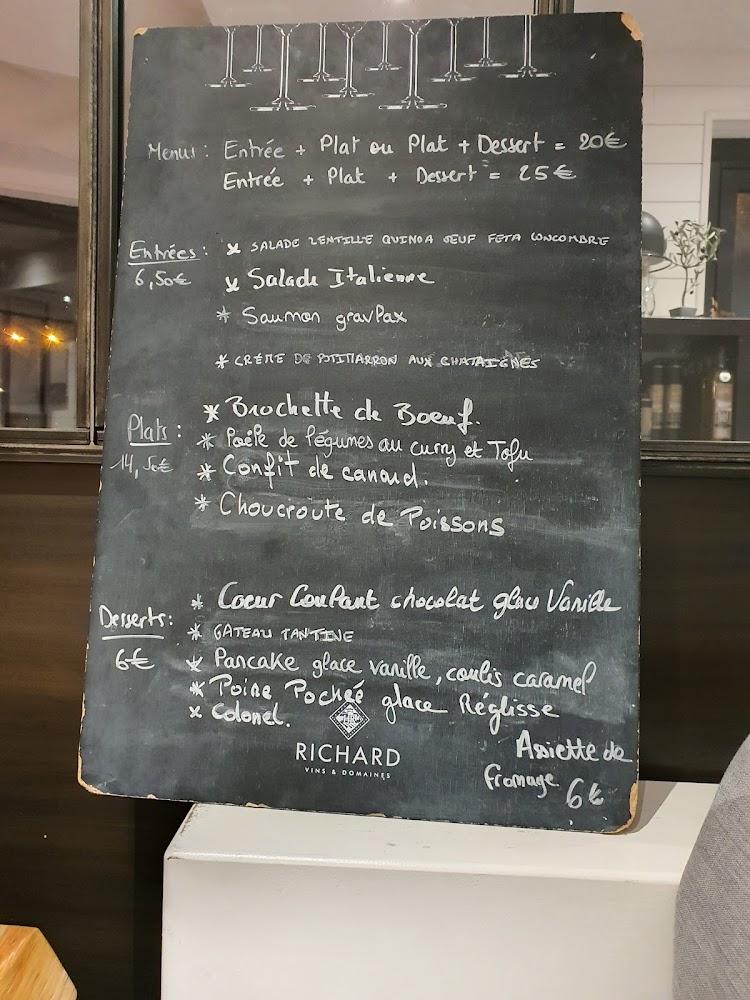 Menus : Entrée + Plat ou Plat + Dessert = 20€
Entrée + Plat + Dessert = 25€
Entrées :
6,50€
* SALADE LENTILLE QUINOA OEUF FETA CONCOMBRE
* Salade Italienne
* Saumon gravlax
* CRÈME DE POTIMARRON AUX CHATAIGNES
Plats :
14,50€
* Brochette de Boeuf.
* Poêle de légumes au curry et Tofu
* Confit de canard.
* Choucroute de Poissons
Desserts :
6€
* Coeur Coulant chocolat glace Vanille
* GATEAU TANTINE
* Pancake glace vanille, coulis caramel
* Poire Pochée glace Réglisse
* Colonel.
RICHARD
VINS & DOMAINES
Assiette de
fromage 6€